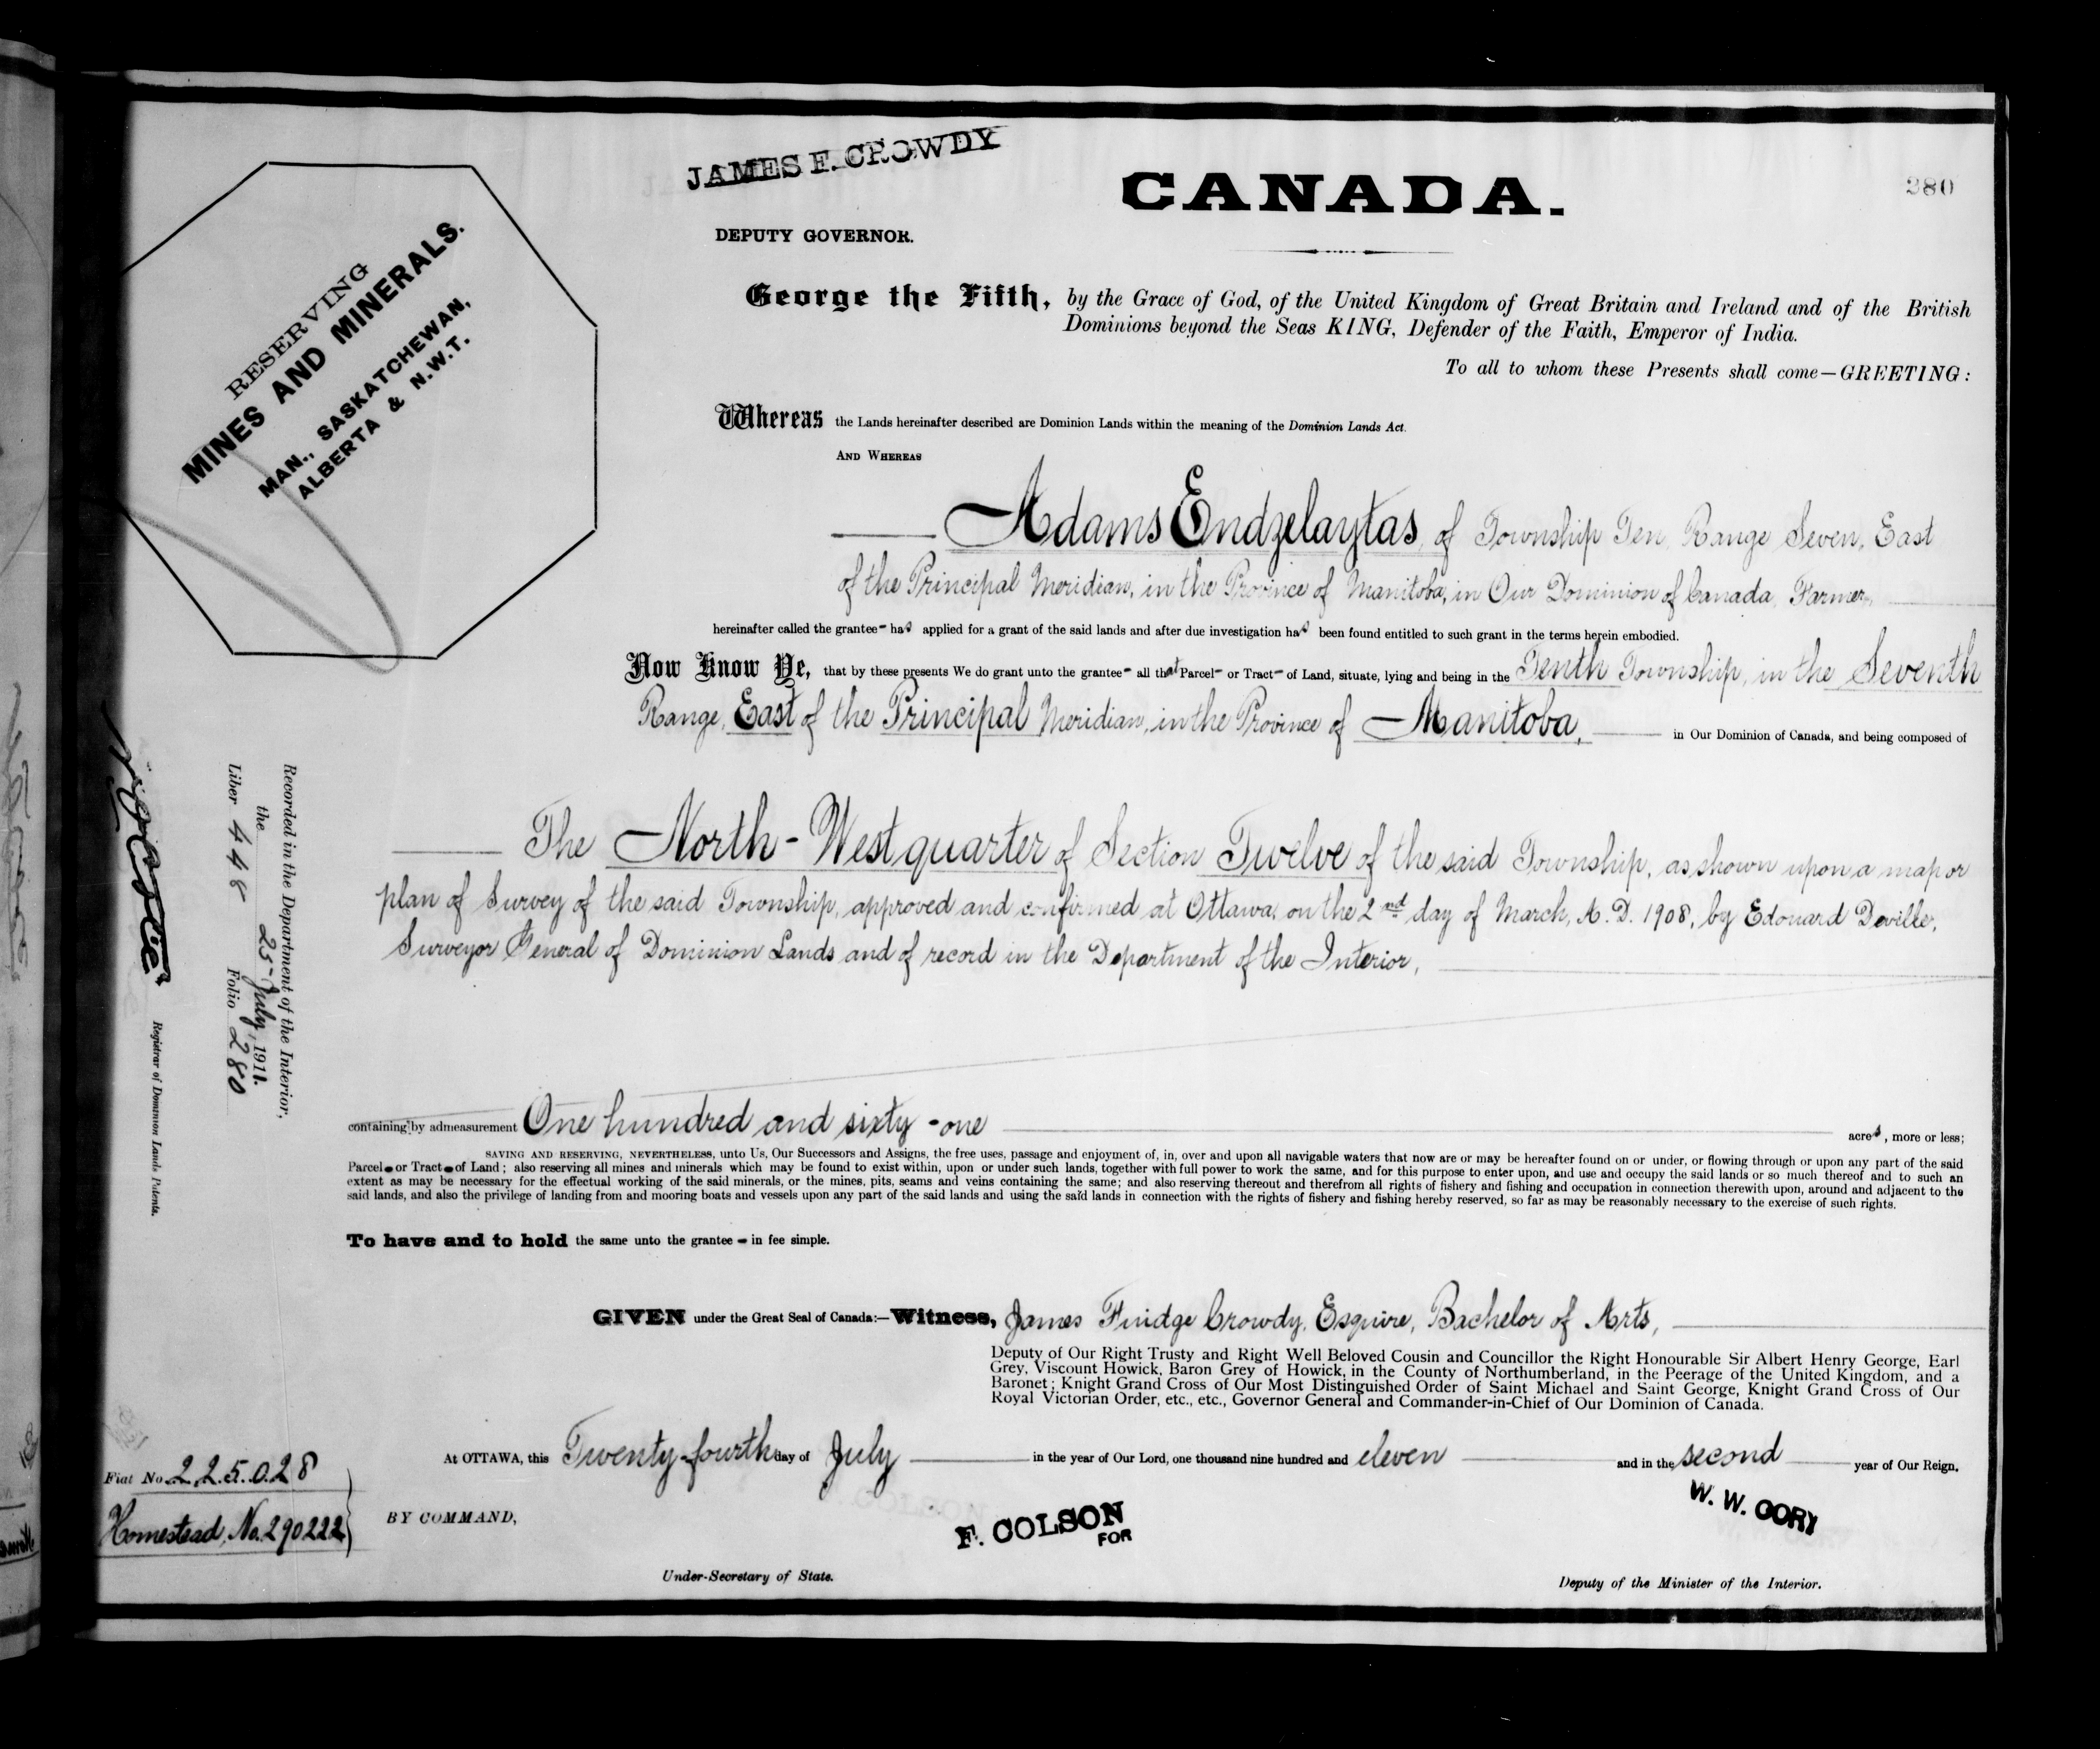 JAMES F. CROWDY
DEPUTY GOVERNOR.
CANADA.
280
RESERVING
MINES AND MINERALS.
MAN., SASKATCHEWAN,
ALBERTA & N.W.T.
George the Fifth, by the Grace of God, of the United Kingdom of Great Britain and Ireland and of the British
Dominions beyond the Seas KING, Defender of the Faith, Emperor of India.
To all to whom these Presents shall come—GREETING:
Whereas the Lands hereinafter described are Dominion Lands within the meaning of the Dominion Lands Act.
AND WHEREAS
Adams Endzelaytas, of Township Ten, Range Seven, East
of the Principal Meridian, in the Province of Manitoba, in Our Dominion of Canada, Farmer,
hereinafter called the grantee- has applied for a grant of the said lands and after due investigation has been found entitled to such grant in the terms herein embodied.
Now Know Ye, that by these presents We do grant unto the grantee- all that Parcel- or Tract- of Land, situate, lying and being in the Tenth Township, in the Seventh
Range, East of the Principal Meridian, in the Province of Manitoba, in Our Dominion of Canada, and being composed of
The North-West quarter of Section Twelve of the said Township, as shown upon a map or
plan of Survey of the said Township, approved and confirmed at Ottawa, on the 2nd day of March, A.D. 1908, by Edouard Deville,
Surveyor General of Dominion Lands and of record in the Department of the Interior,
containing by admeasurement One hundred and sixty-one acres, more or less;
SAVING AND RESERVING, NEVERTHELESS, unto Us, Our Successors and Assigns, the free uses, passage and enjoyment of, in, over and upon all navigable waters that now are or may be hereafter found on or under, or flowing through or upon any part of the said
Parcel- or Tract- of Land; also reserving all mines and minerals which may be found to exist within, upon or under such lands, together with full power to work the same, and for this purpose to enter upon, and use and occupy the said lands or so much thereof and to such an
extent as may be necessary for the effectual working of the said minerals, or the mines, pits, seams and veins containing the same; and also reserving thereout and therefrom all rights of fishery and fishing and occupation in connection therewith upon, around and adjacent to the
said lands, and also the privilege of landing from and mooring boats and vessels upon any part of the said lands and using the said lands in connection with the rights of fishery and fishing hereby reserved, so far as may be reasonably necessary to the exercise of such rights.
To have and to hold the same unto the grantee - in fee simple.
GIVEN under the Great Seal of Canada:—Witness, James Fuidge Crowdy, Esquire, Bachelor of Arts,
Deputy of Our Right Trusty and Right Well Beloved Cousin and Councillor the Right Honourable Sir Albert Henry George, Earl
Grey, Viscount Howick, Baron Grey of Howick, in the County of Northumberland, in the Peerage of the United Kingdom, and a
Baronet; Knight Grand Cross of Our Most Distinguished Order of Saint Michael and Saint George, Knight Grand Cross of Our
Royal Victorian Order, etc., etc., Governor General and Commander-in-Chief of Our Dominion of Canada.
At OTTAWA, this Twenty-fourth day of July in the year of Our Lord, one thousand nine hundred and eleven and in the second year of Our Reign.
BY COMMAND,
F. COLSON
FOR
Under-Secretary of State.
W. W. CORY
Deputy of the Minister of the Interior.
Recorded in the Department of the Interior,
the 25 July, 1911.
Liber 448 Folio 280
Registrar of Dominion Lands Patents.
Fiat No. 225028
Homestead, No. 290222